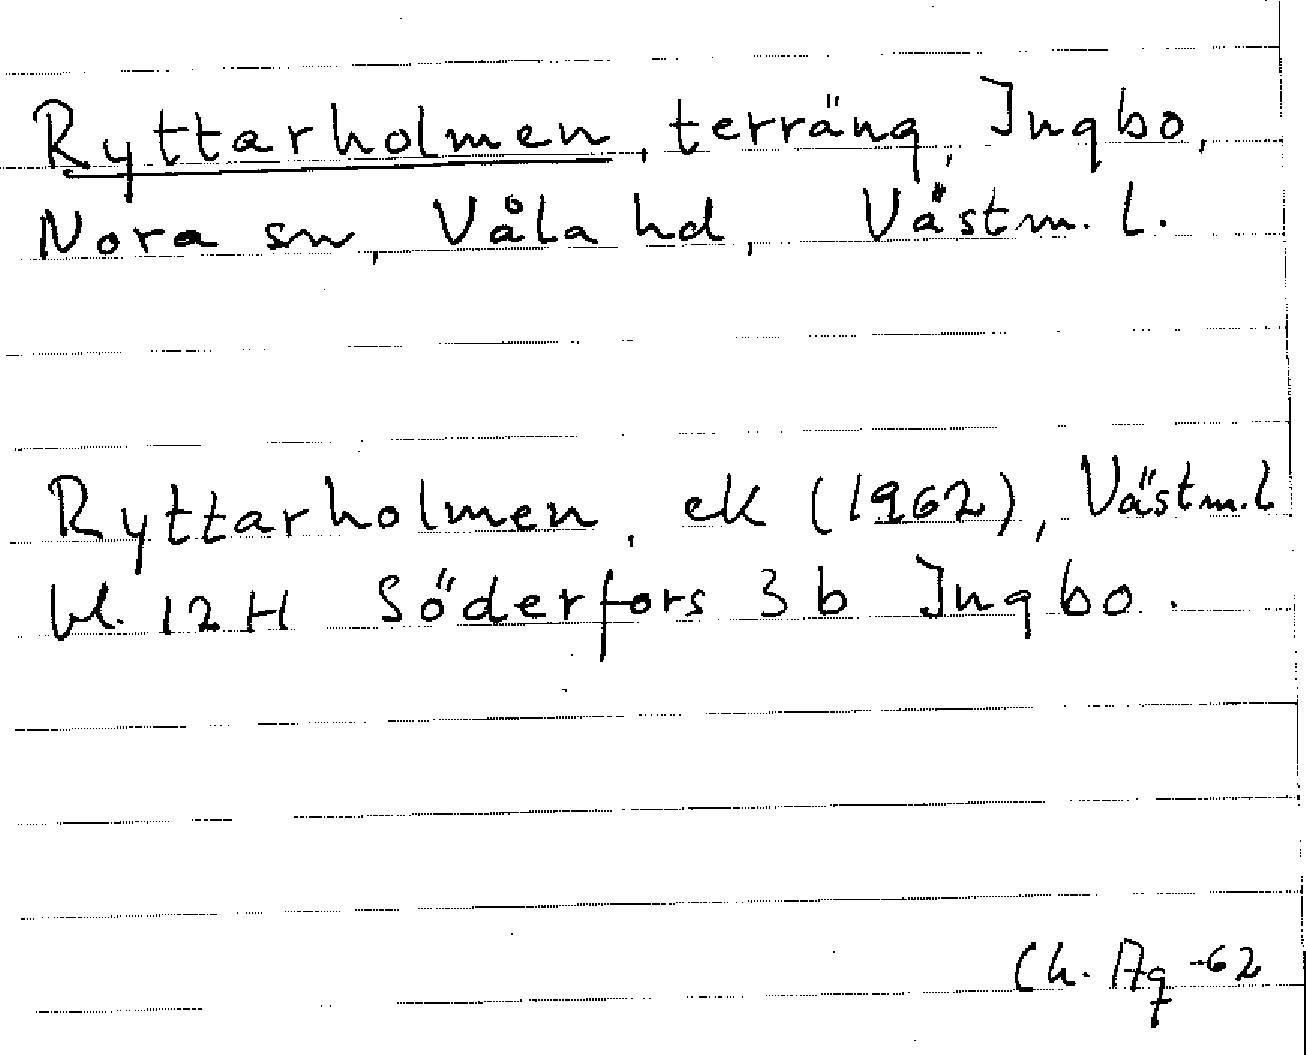 Ryttarholmen, terräng, Ingbo,
Nora sn, Våla hd, Västm. l.
Ryttarholmen, ek (1962), Västm. l
bl. 12 H Söderfors 3 b Ingbo.
Ch. Ag -62